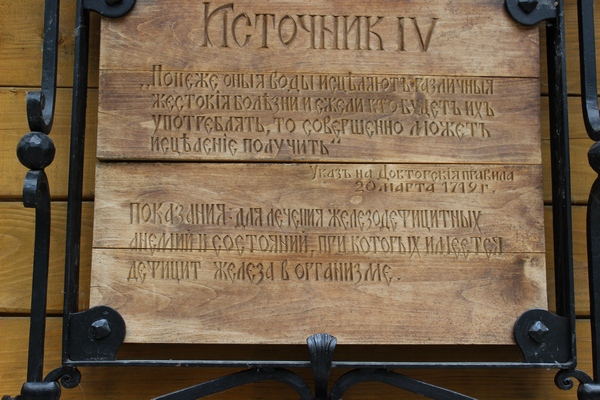 Источник IV
„Понеже оныя воды исцѣляютъ различныя
жестокія болѣзни и ежели кто будетъ ихъ
употреблять, то совершенно можетъ
исцѣленіе получить“
Указъ на Докторскія правила
20 марта 1719 г.
Показания: для лечения железодефицитных
анемий и состояний, при которых имеется
дефицит железа в организме.